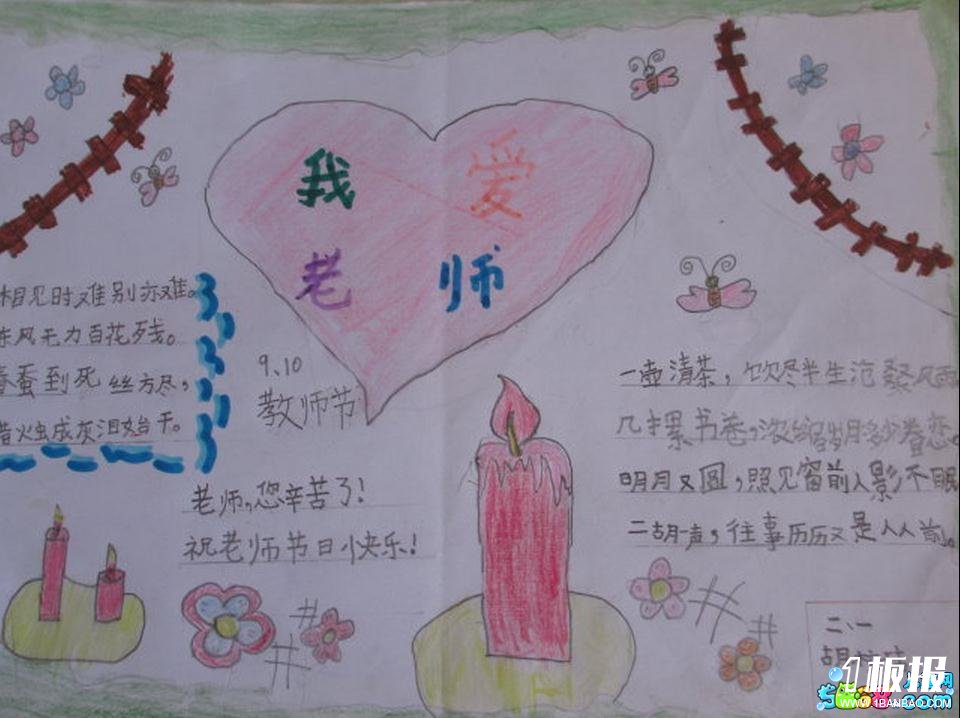 我 爱
老 师
相见时难别亦难。
东风无力百花残。
春蚕到死丝方尽,
蜡火虫成灰泪始干。
9.10
教师节
老师,您辛苦了!
祝老师节日快乐!
一壶清茶,饮尽半生沧桑风雨
几摞书卷,浓缩岁月多少眷恋。
明月又圆,照见窗前人影不眠
二胡声,往事历历又是人人前。
二、一
胡
板报
WWW.1BANBAO.COM